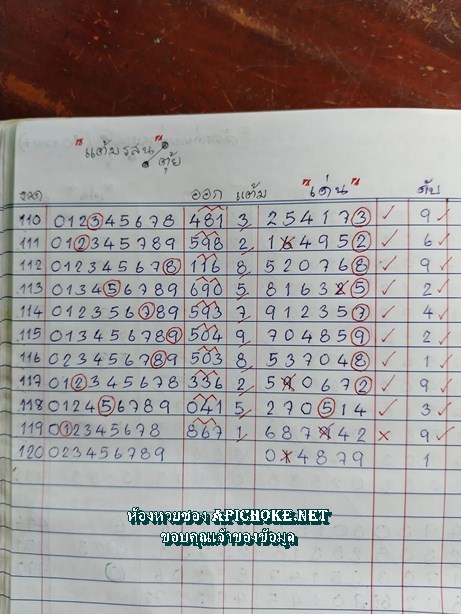 "แต้มรสน"
ตุ้ย
งวด ออก แต้ม "เด่น" ดับ
110 012345678 481 3 254173 ✓ 9 ✓
111 012345789 598 2 164952 ✓ 6 ✓
112 012345678 116 8 520768 ✓ 9 ✓
113 013456789 690 5 816325 ✓ 2 ✓
114 012356789 593 7 912357 ✓ 4 ✓
115 013456789 504 9 704859 ✓ 2 ✓
116 023456789 503 8 537048 ✓ 1 ✓
117 012345678 336 2 590672 ✓ 9 ✓
118 012456789 041 5 270514 ✓ 3 ✓
119 012345678 867 1 687442 × 9 ✓
120 023456789 0 4879 1
ห้องหวยซอง APICHOKE.NET
ขอบคุณเจ้าของข้อมูล